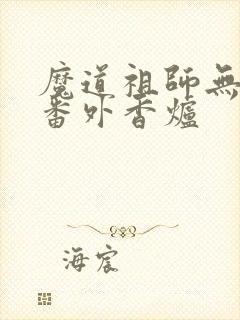 魔道祖師無
番外香爐
海宸